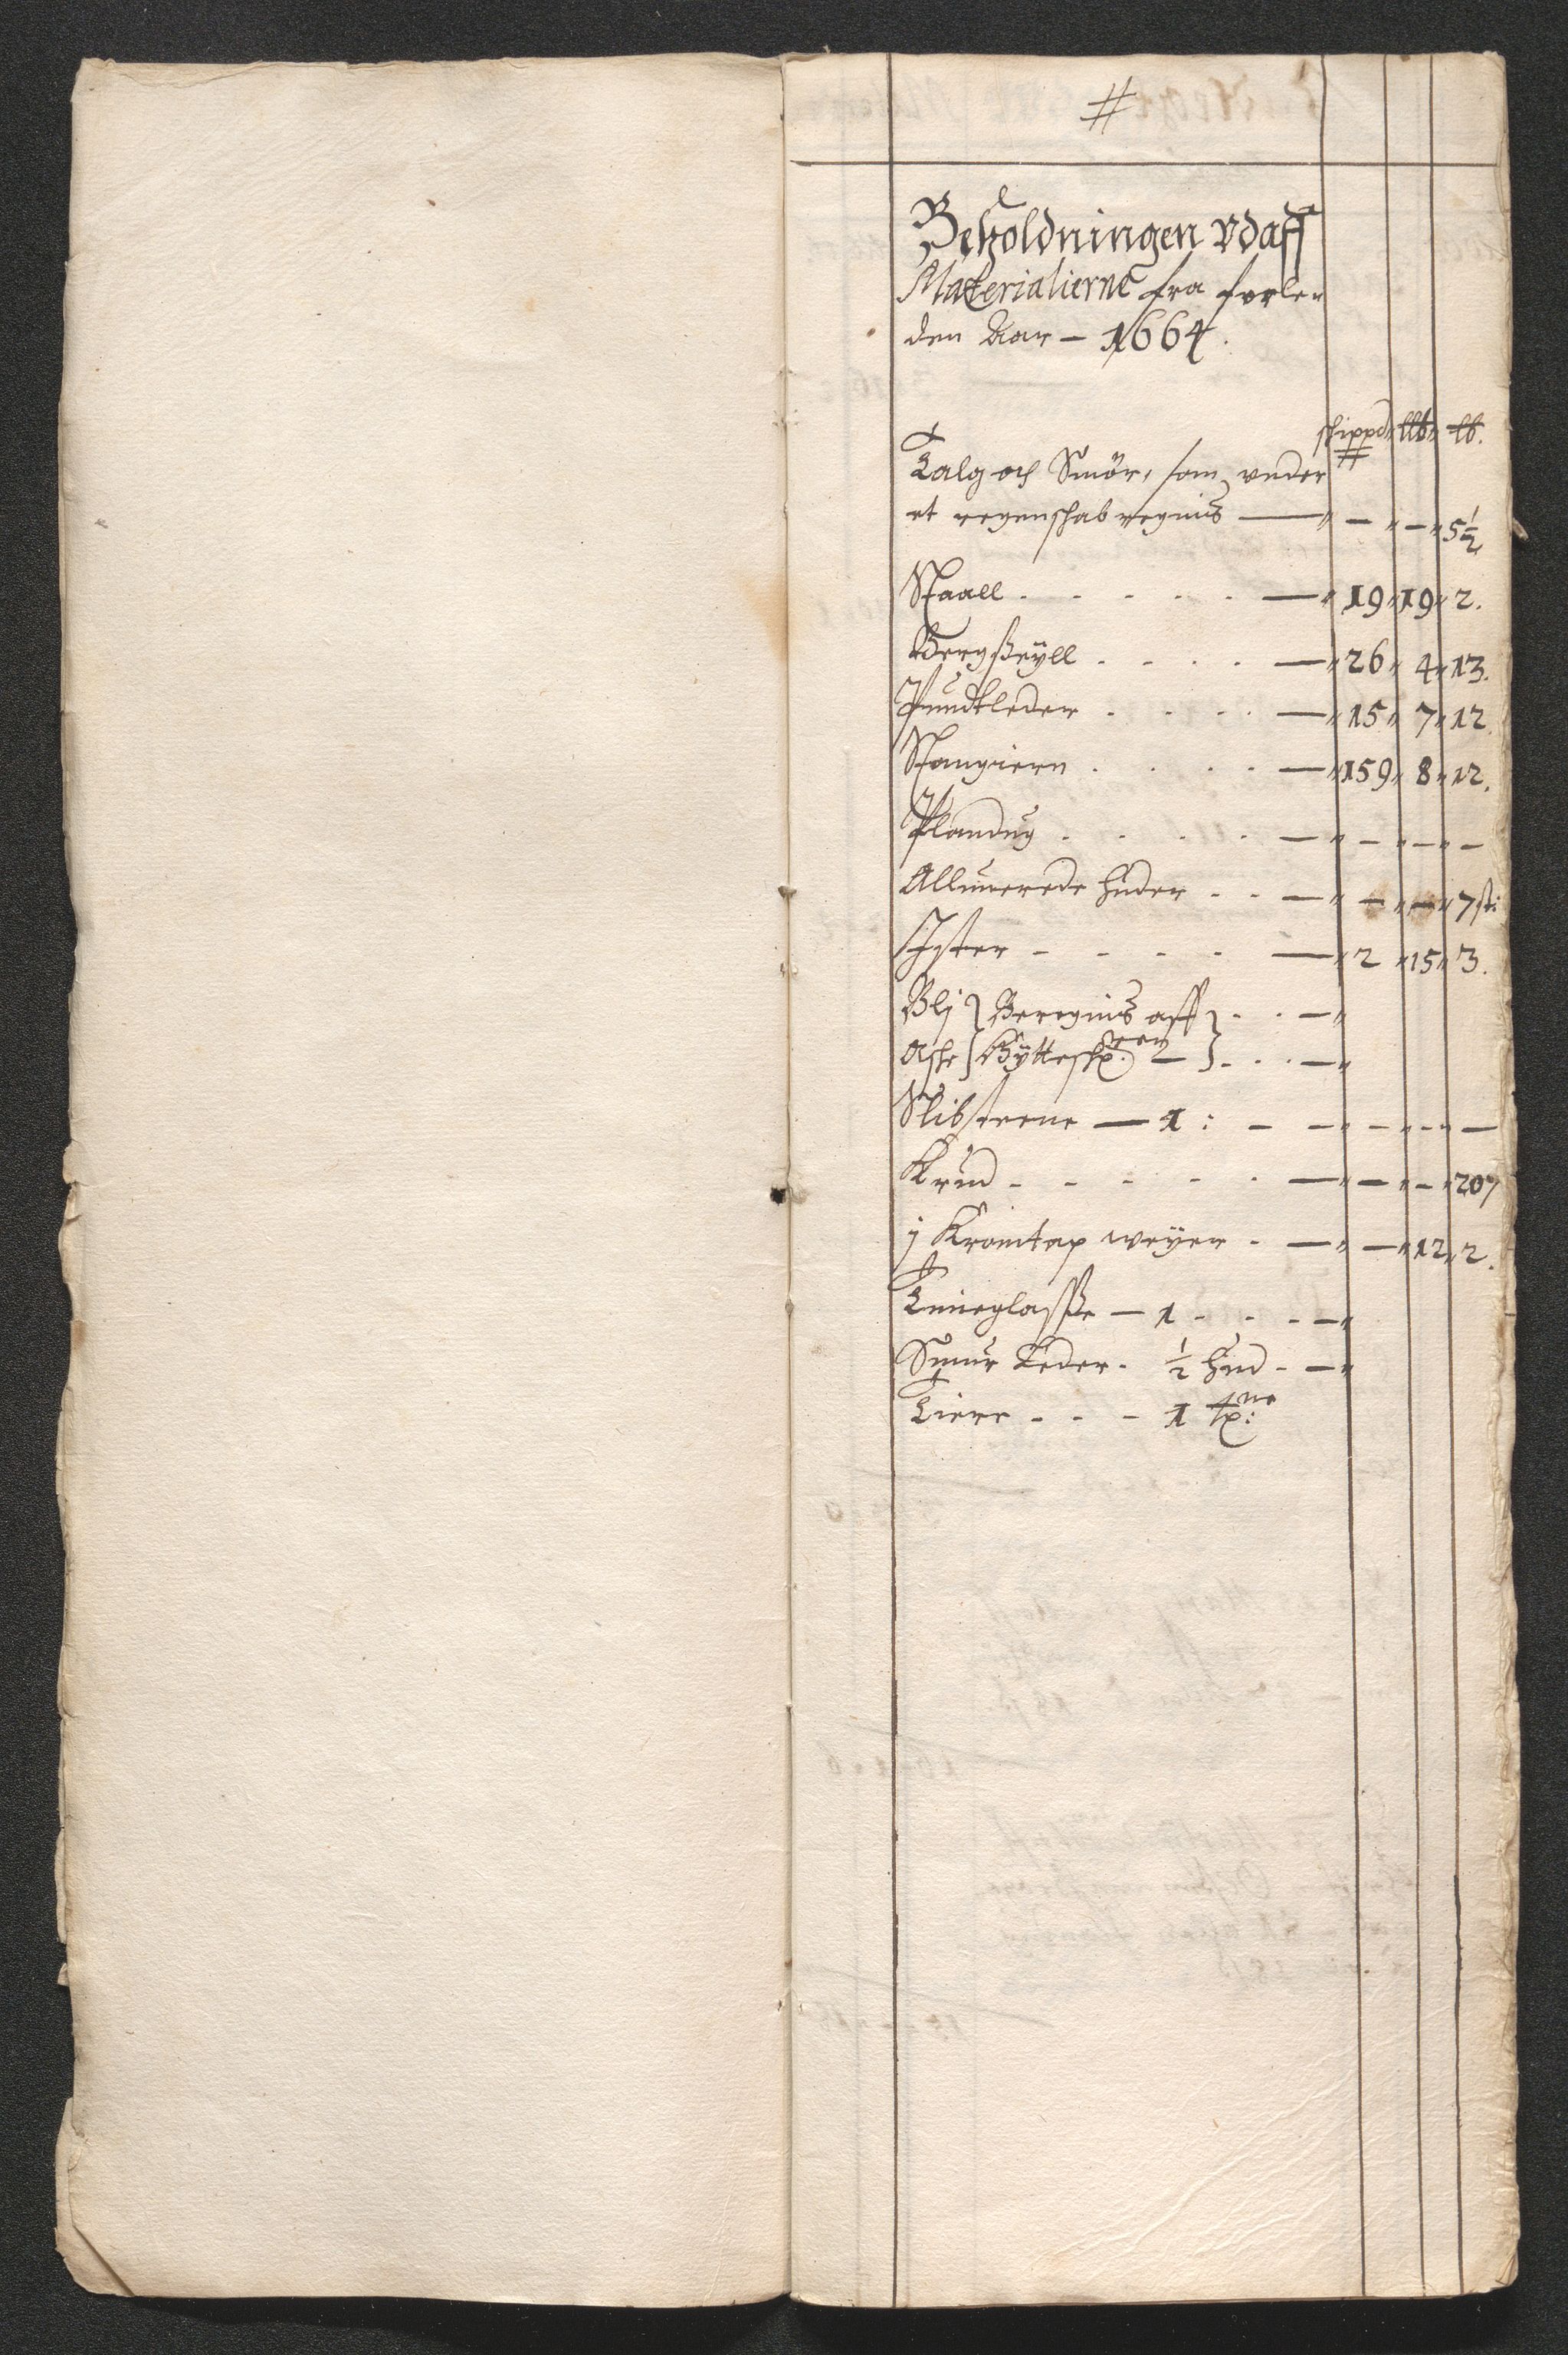 #
Beholdningen vdaff
Materialierne fra forle-
den Aar – 1664.
skippd" l℔" ℔.
Talg och Smör, som vnder #
et regenschab regnis — " – " – " 5½
Staall . . . . . — " 19 " 19 " 2.
Bergseyll . . . . — " 26 " 4 " 13.
Pundtleder . . . . — " 15 " 7 " 12.
Stangiern . . . . — " 159 " 8 " 12.
Plandug . . . . — " – " – " –
Allunerede huder . . — " – " – " 7 st:
Ister – – – – — " 2 " 15 " 3.
Blj } Beregnis aff } . . — "
Aske } Hÿtteskr:ren – } . . . — "
Slibsteene — 1 : – – " – " – " –
Krud – – – – . — " — " – " 207
j Kromtap weyer . — " — " 12 " 2.
Timeglasse — 1 – . . – "
Smur Leder . ½ hud – – "
Tiere – – – 1 tx:ne